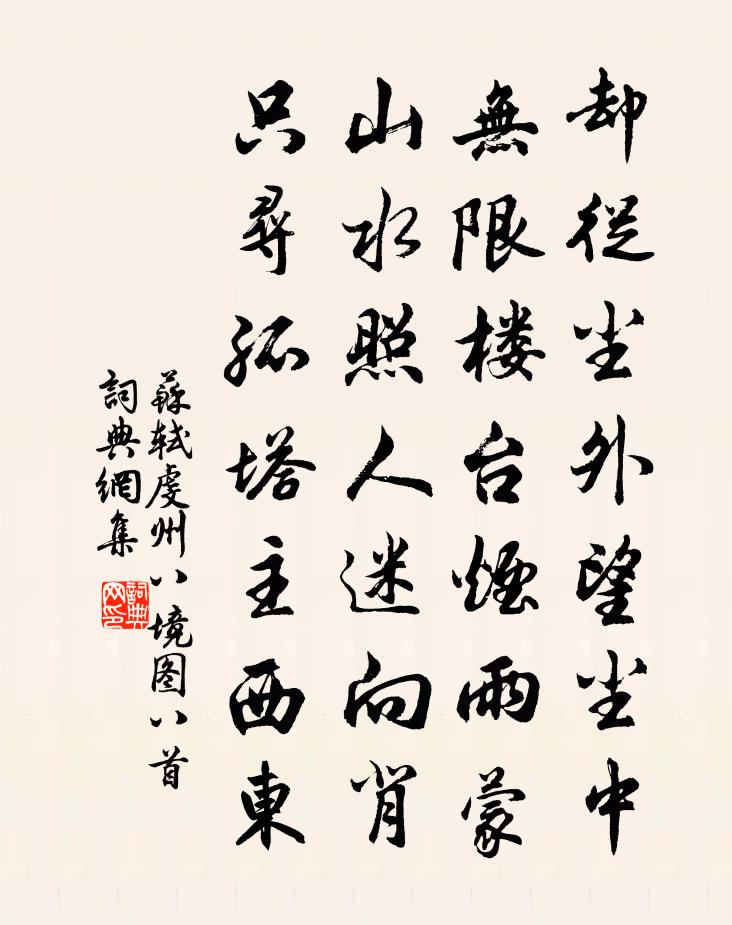 却從尘外望尘中
無限楼台煙雨蒙
山水照人迷向背
只尋孤塔主西東
蘇軾虔州八境图八首
詞典網集
詞典网印